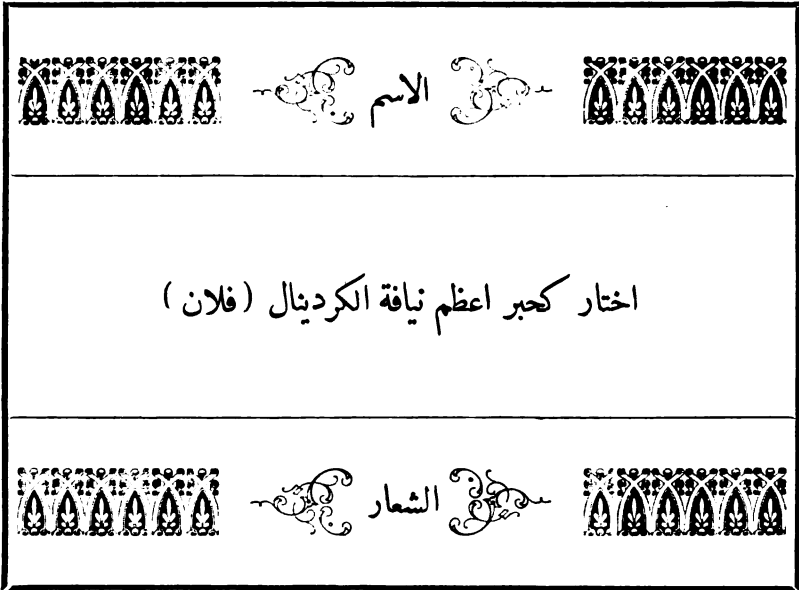 الاسم
اختار كحبر اعظم نيافة الكردينال (فلان)
الشعار